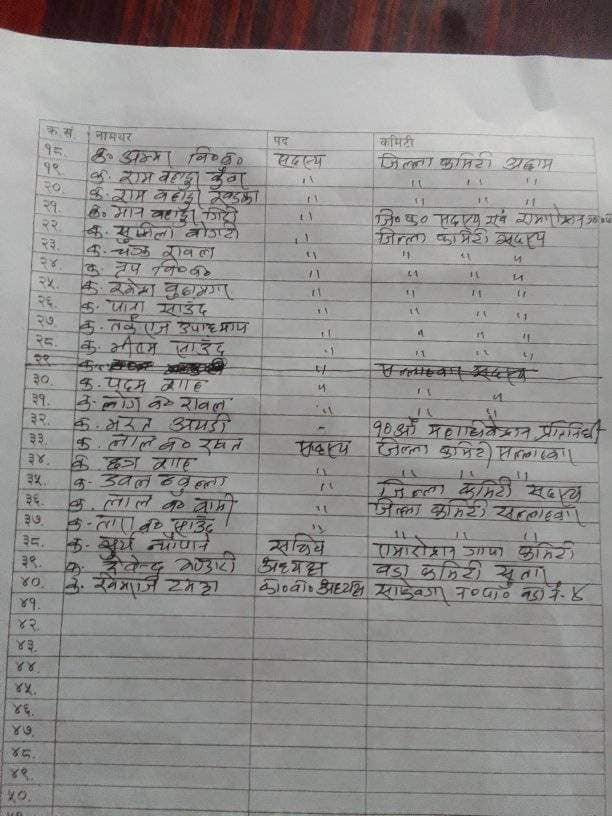 क्र.सं. नामथर पद कमिटी
१८. क. अम्मा वि०क० सदस्य जिल्ला कमिटी अछाम
१९. क. राम बहादुर कुँवर " " " "
२०. क. राम बहादुर खड्का " " " "
२१. क. मान बहादुर गिरी " जि०क० सदस्य एवं रामारोशन
२२. क. सुशिला बोगटी " जिल्ला कमिटी सदस्य
२३. क. चक्र रावल " " " "
२४. क. वि०क० " " " "
२५. क. बुढामगर " " " "
२६. क. साउँद " " " "
२७. क. उपाध्याय " " " "
२८. क. साउँद " " " "
२९. क. " सल्लाहकार सदस्य
३०. क. पदम शाह " "
३१. क. लोग ब० रावल " " "
३२. क. भरत - १०औं महाधिवेशन प्रतिनिधी
३३. क. लाल ब० रावत सदस्य जिल्ला कमिटी सल्लाहकार
३४. क. छत्र शाह " " " "
३५. क. डबल " जिल्ला कमिटी सदस्य
३६. क. लाल ब० स्वामी " जिल्ला कमिटी सल्लाहकार
३७. क. तारा ब० साउँद " " " "
३८. क. सूर्य न्यौपाने सचिव रामारोशन गापा कमिटी
३९. क. देवेन्द्र भण्डारी अध्यक्ष वडा कमिटी सुतार
४०. क. खेमराज टमटा का०वा० अध्यक्ष साँफेबगर न०पा० वडा नं.- ४
४१.
४२.
४३.
४४.
४५.
४६.
४७.
४८.
४९.
५०.